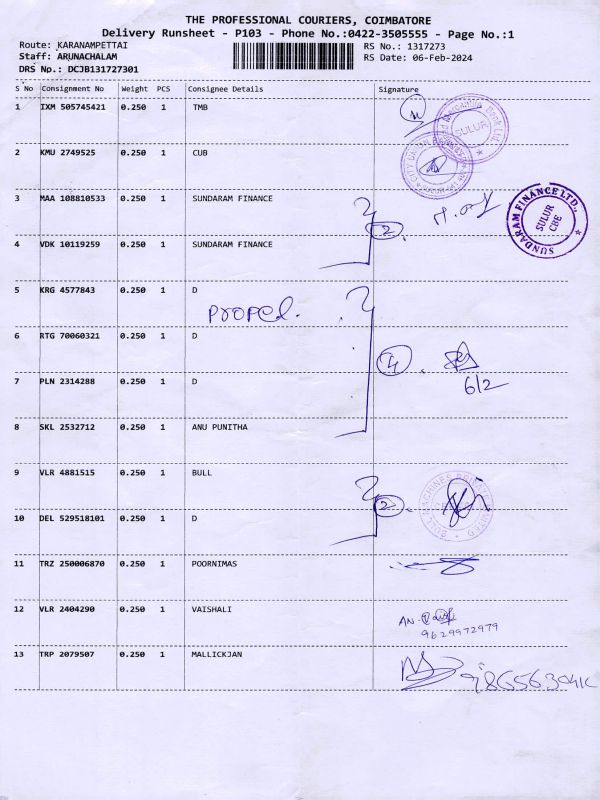 THE PROFESSIONAL COURIERS, COIMBATORE
Delivery Runsheet - P103 - Phone No.:0422-3505555 - Page No.:1
Route: KARANAMPETTAI RS No.: 1317273
Staff: ARUNACHALAM RS Date: 06-Feb-2024
DRS No.: DCJB131727301
S No Consignment No Weight PCS Consignee Details Signature
1 IXM 505745421 0.250 1 TMB
SULUR
2 KMU 2749525 0.250 1 CUB
CITY UNION
3 MAA 108810533 0.250 1 SUNDARAM FINANCE
2
SUNDARAM FINANCE LTD., SULUR CBE
4 VDK 10119259 0.250 1 SUNDARAM FINANCE
5 KRG 4577843 0.250 1 D
propel.
6 RTG 70060321 0.250 1 D
4
7 PLN 2314288 0.250 1 D
6/2
8 SKL 2532712 0.250 1 ANU PUNITHA
9 VLR 4881515 0.250 1 BULL
2
BULL MACHINES PRIVATE LIMITED
10 DEL 529518101 0.250 1 D
11 TRZ 250006870 0.250 1 POORNIMAS
12 VLR 2404290 0.250 1 VAISHALI
9629972979
13 TRP 2079507 0.250 1 MALLICKJAN